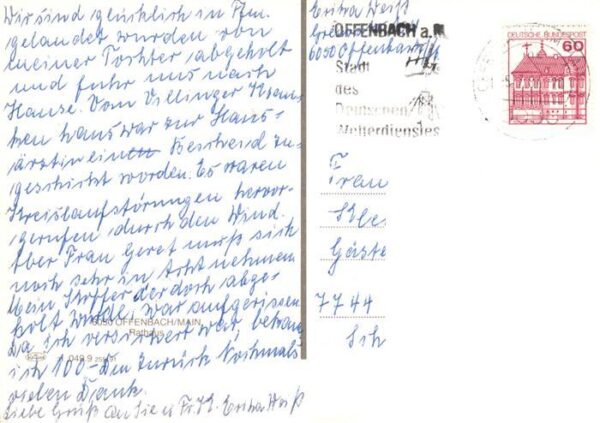 Wir sind glücklich in Ffm.
gelandet wurden von
meiner Tochter abgeholt
und fuhr uns nach
Hause. Vom Villinger Kran-
ken haus war zur Haus-
ärztin ein Bescheid zu-
geschickt worden. Es waren
Kreislaufstörungen hervor-
gerufen, durch den Wind.
Aber Frau Geret muß sich
noch sehr in Acht nehmen
Mein Koffer der doch abge-
holt wurde, war aufgerissen
Da ich versichert war, bekam
ich 100-Dm zurück Nochmals
vielen Dank.
Liebe Grüß an Sie u Fr. Erika Weiß
6050 OFFENBACH/MAIN
Rathaus
Erika Weiß
6050 Offenbach
OFFENBACH a.M
Stadt
des
Deutschen
Wetterdienstes
DEUTSCHE BUNDESPOST
60
Frau
Kle
Gäste
7744
Sch